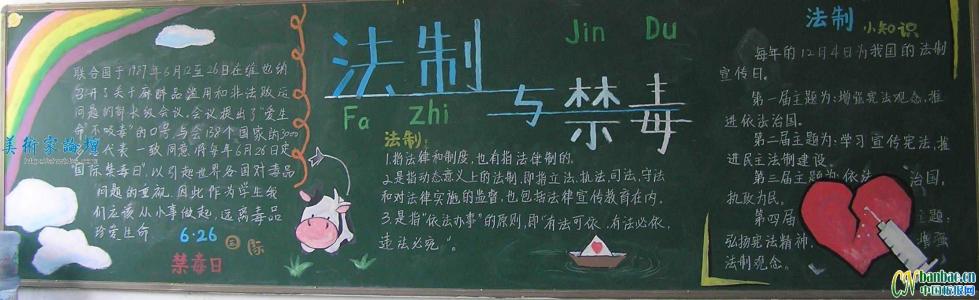 联合国于1987年6月12至26日在维也纳
召开了关于麻醉品滥用和非法贩运
问题的部长级会议,会议提出了“爱生
命,不吸毒”的口号,与会138个国家的3000
代表一致同意将每年6月26日定
“国际禁毒日”,以引起世界各国对毒品
问题的重视,因此作为学生我
们应该从小事做起,远离毒品
珍爱生命
6·26 国际
禁毒日
美術家論壇
法制
Fa Zhi
与
Jin Du
禁毒
法制:
1.指法律和制度,也有指法律制的.
2.是指动态意义上的法制,即指立法、执法、司法、守法
和对法律实施的监督,也包括法律宣传教育在内.
3.是指“依法办事”的原则,即“有法可依、有法必依、
违法必究”。
法制 小知识
每年的12月4日为我国的法制
宣传日。
第一届主题为:增强宪法观念,推
进依法治国。
第二届主题为:学习宣传宪法,推
进民主法制建设。
第三届主题为:依法 治国,
执政为民。
第四届 主题:
弘扬宪法精神, 增强
法制观念。
CN banbao.cn
中国板报网